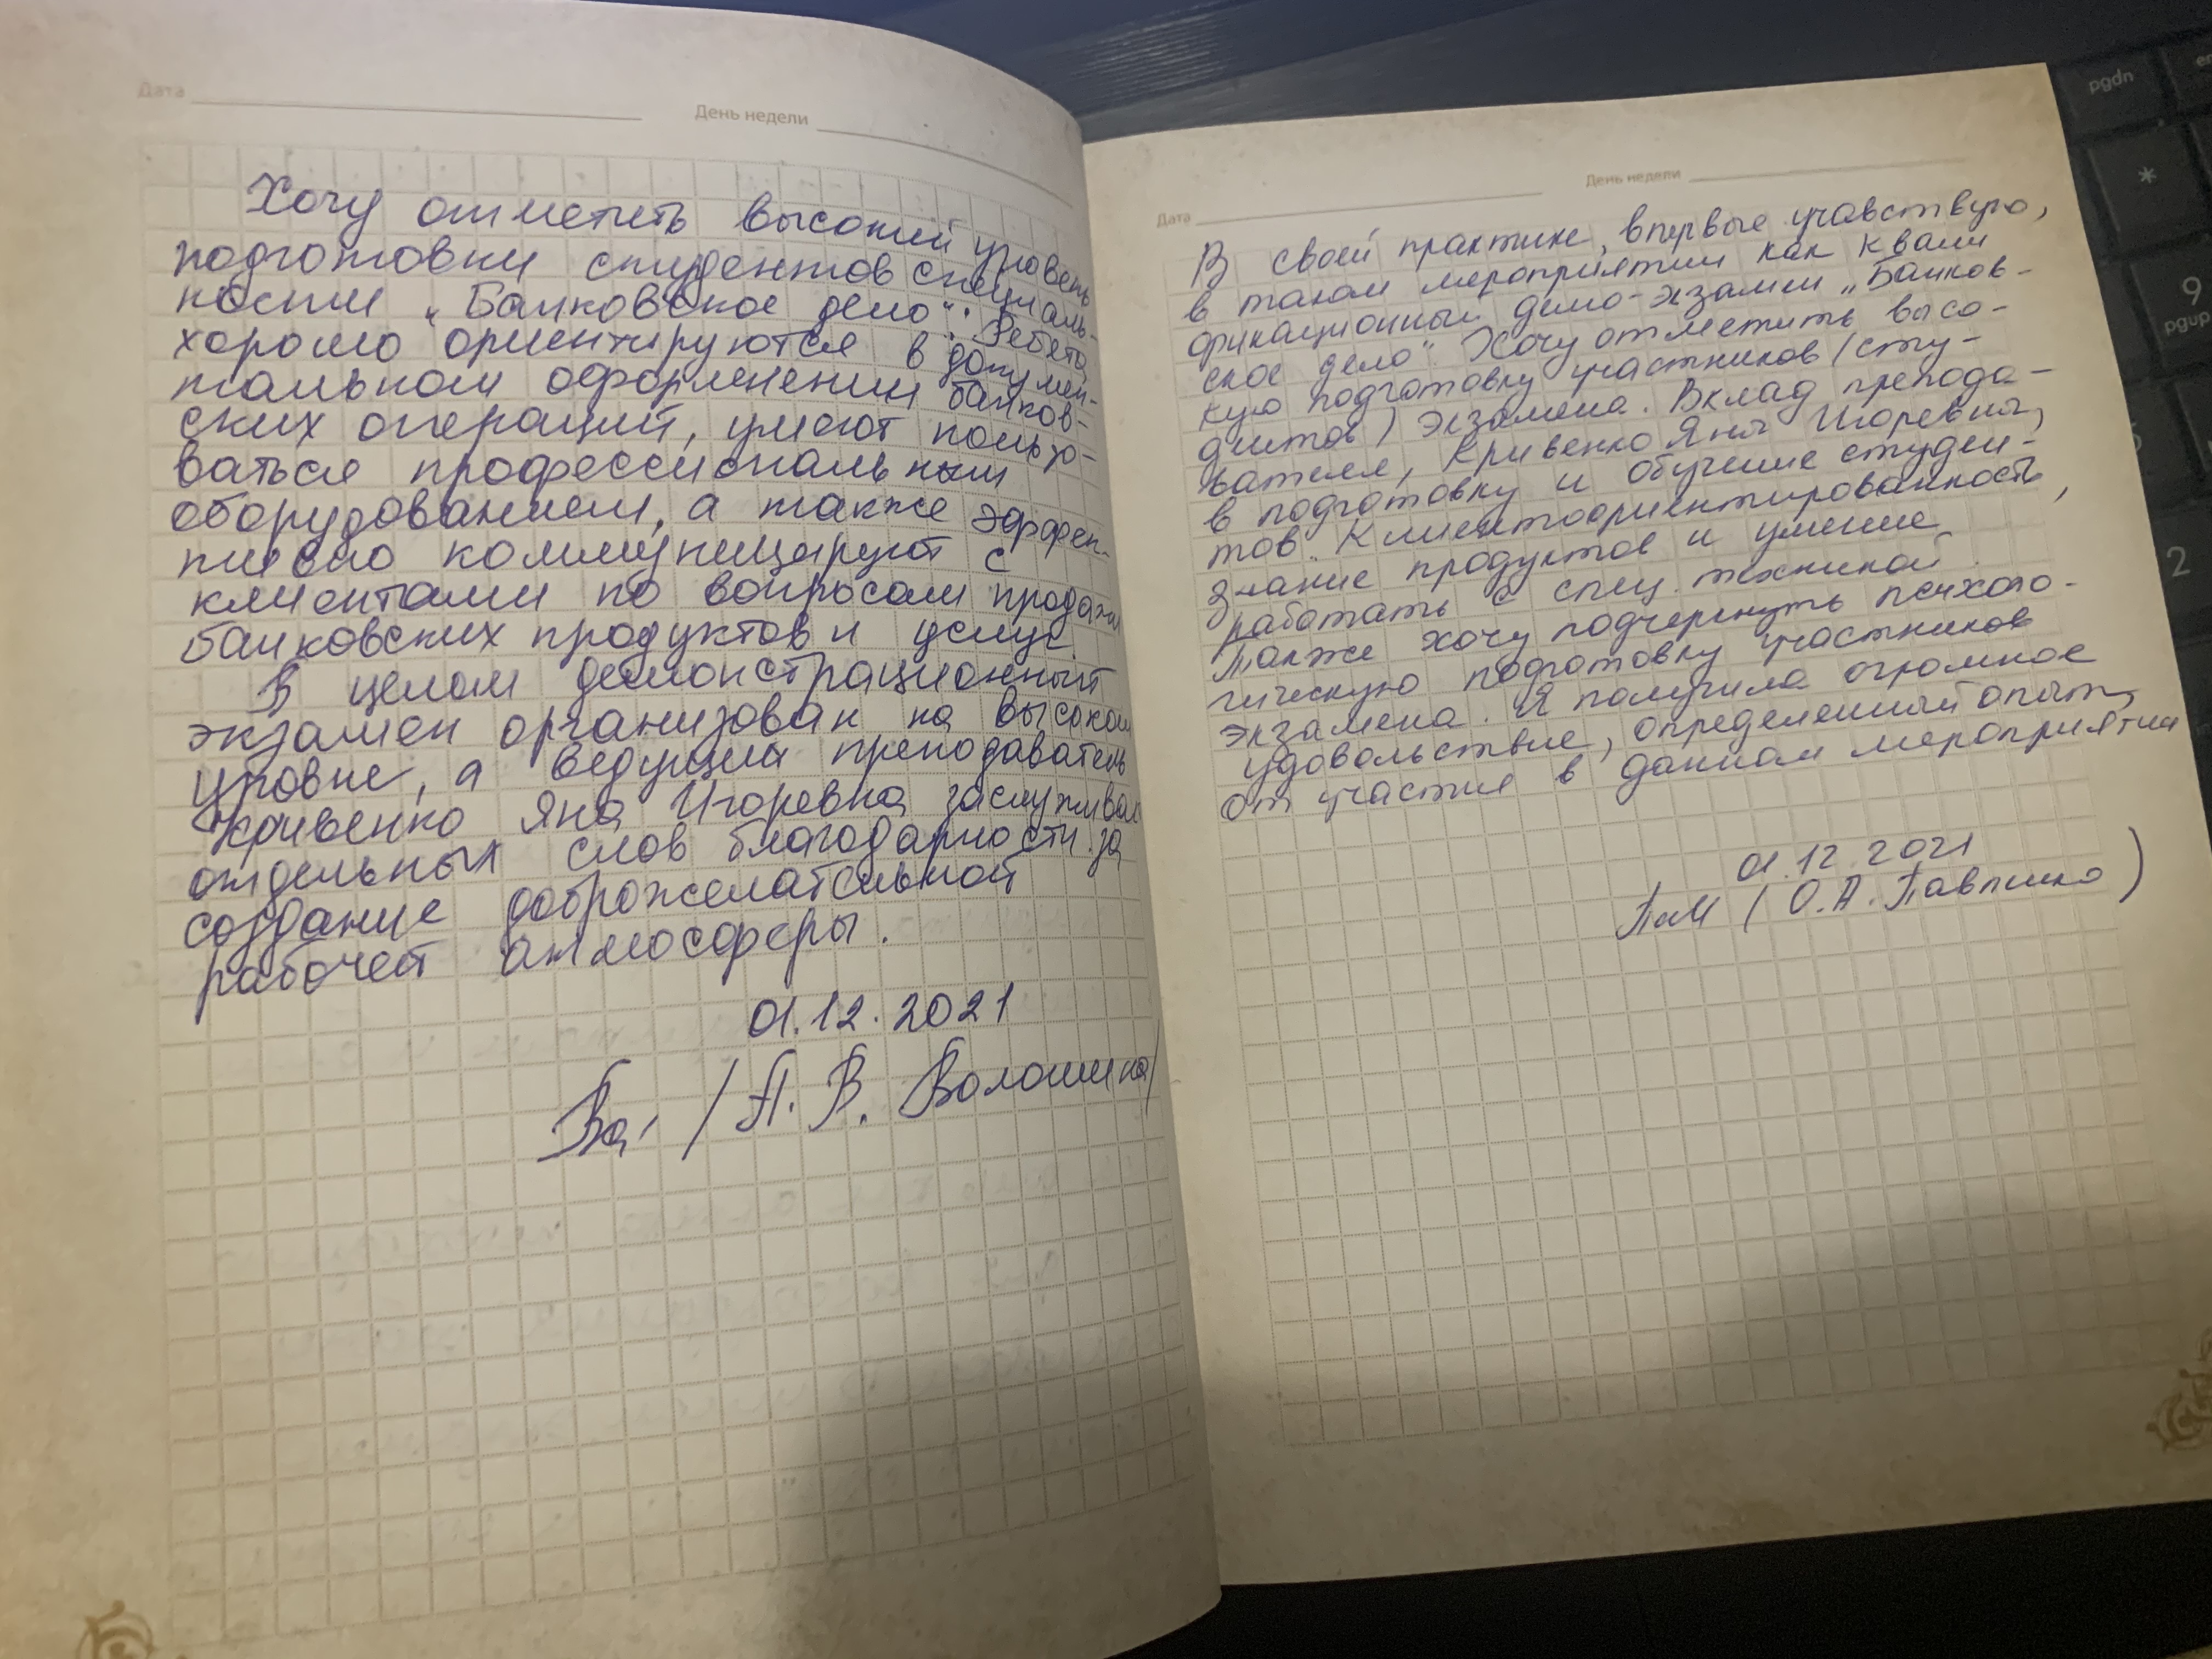 Дата День недели
Хочу отметить высокий уровень
подготовки студентов специаль-
ности „Банковское дело". Ребята
хорошо ориентируются в докумен-
тальном оформлении банков-
ских операций, умеют пользо-
ваться профессиональным
оборудованием, а также эффек-
тивно коммуницируют с
клиентами по вопросам продажи
банковских продуктов и услуг.
В целом демонстрационный
экзамен организован на высоком
уровне, а ведущий преподаватель
Кривенко Яна Игоревна заслуживает
отдельных слов благодарности за
создание доброжелательной
рабочей атмосферы.
01.12.2021
/ В. Волошина/
Дата День недели
В своей практике, впервые учавствую,
в таком мероприятии как квали
фикационный демо-экзамен „Банков-
ское дело". Хочу отметить высо-
кую подготовку участников (сту-
дентов) экзамена. Вклад препода-
вателя, Кривенко Яна Игоревна,
в подготовку и обучение студен-
тов. Клиентоориентированность,
знание продуктов и умение
работать с спец. техникой.
Также хочу подчеркнуть психоло-
гическую подготовку участников
экзамена. Я получила огромное
удовольствие, определенный опыт,
от участия в данном мероприятии
01.12.2021
(О.А. Павленко)
pgdn
*
9
pgup
2